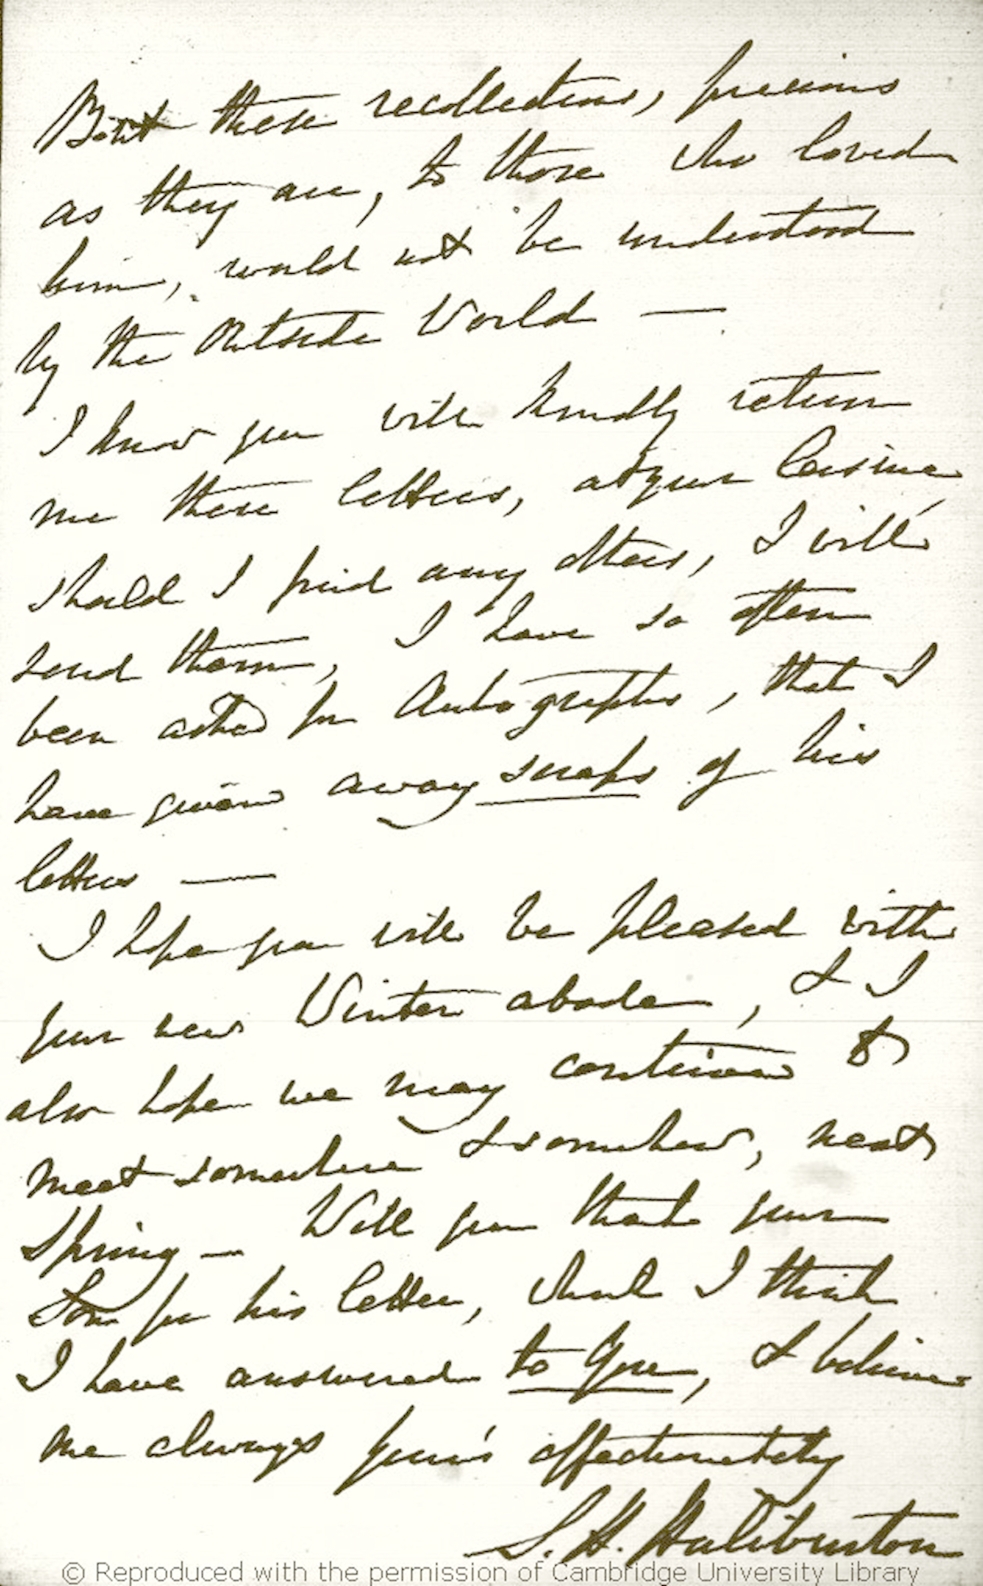 But these recollections, precious
as they are, to those who loved
him, would not be understood
by the Outside World —
I know you will kindly return
me these letters, at your leisure,
should I find any others, I will
send them, I have so often
been asked for Autographs, that I
have given away scraps of his
letters —
I hope you will be pleased with
your new Winter abode, & I
also hope we may continue to
meet somewhere & somehow, next
Spring — Will you thank your
Son for his letter, which I think
I have answered to you, & believe
me always your's affectionately
S. H. Haliburton
© Reproduced with the permission of Cambridge University Library